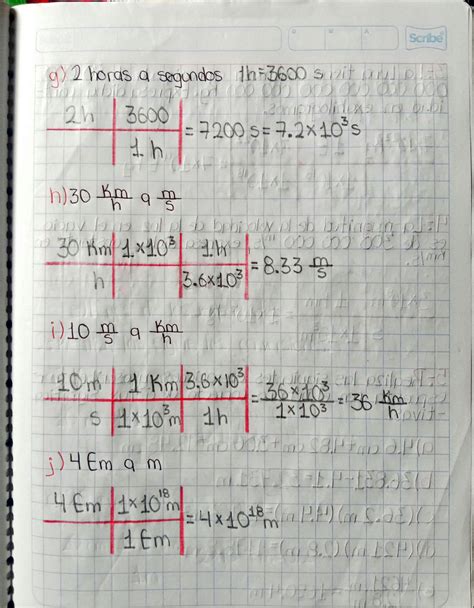 Scribe
g) 2 horas a segundos 1h=3600 s
2h | 3600
1 h
= 7200 s = 7.2×10³ s
h) 30 Km/h a m/s
30 Km | 1×10³ | 1h
h | 3.6×10³
= 8.33 m/s
i) 10 m/s a Km/h
10 m | 1 Km | 3.6×10³
s | 1×10³m | 1h
= 36×10³/1×10³ = 36 Km/h
j) 4 Em a m
4 Em | 1×10¹⁸m
1 Em
= 4×10¹⁸m